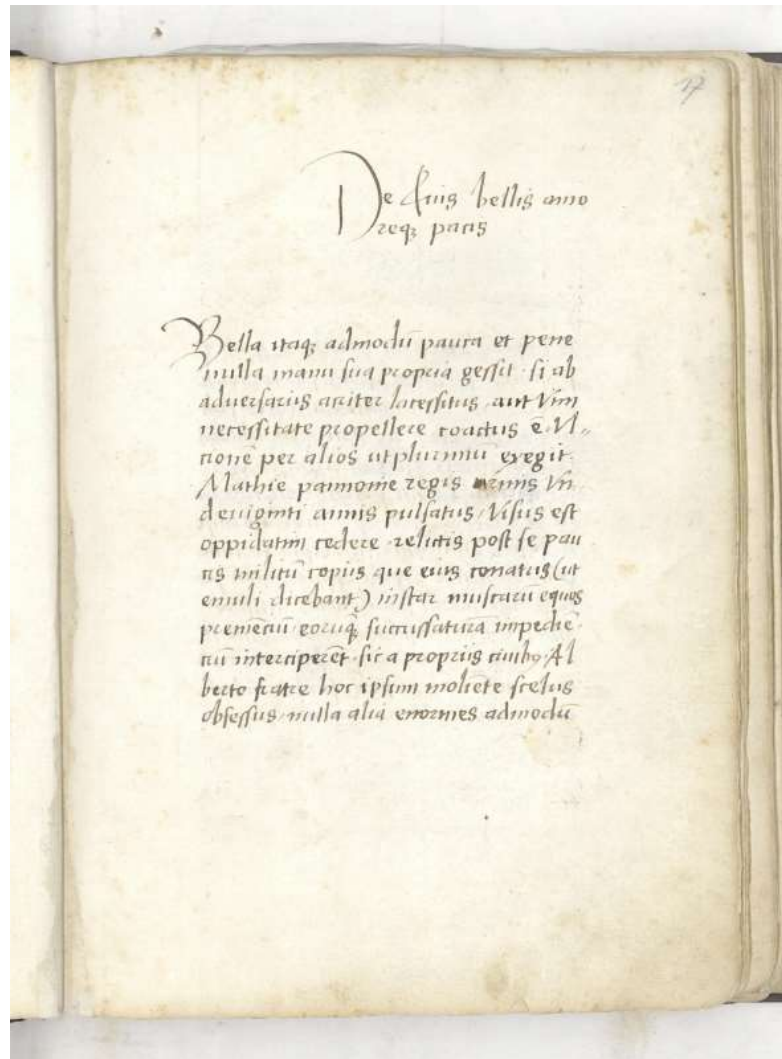 17
De suis bellis amo
reqꝫ pacis
Bella itaqꝫ admodū pauca et pene
nulla manu sua propria gessit · si ab
adversariis acriter lacessitus aut vim
necessitate propellere coactus ē. Vl〃
cionē per alios ut plurimū exegit.
Mathie pannonie regis armis Vn
deviginti annis pulsatus / Visus est
oppidatim cedere · relictis post se pau
cis militū copiis que eius conatus (ut
emuli dicebant) instar muscarū equos
premēciū eorūqꝫ succussatura impediē·
ciū interciperēt · sic a propriis civibꝫ · Al
berto fratre hoc ipsum moliēte scelus
obsessus / nulla alia enormes admodū